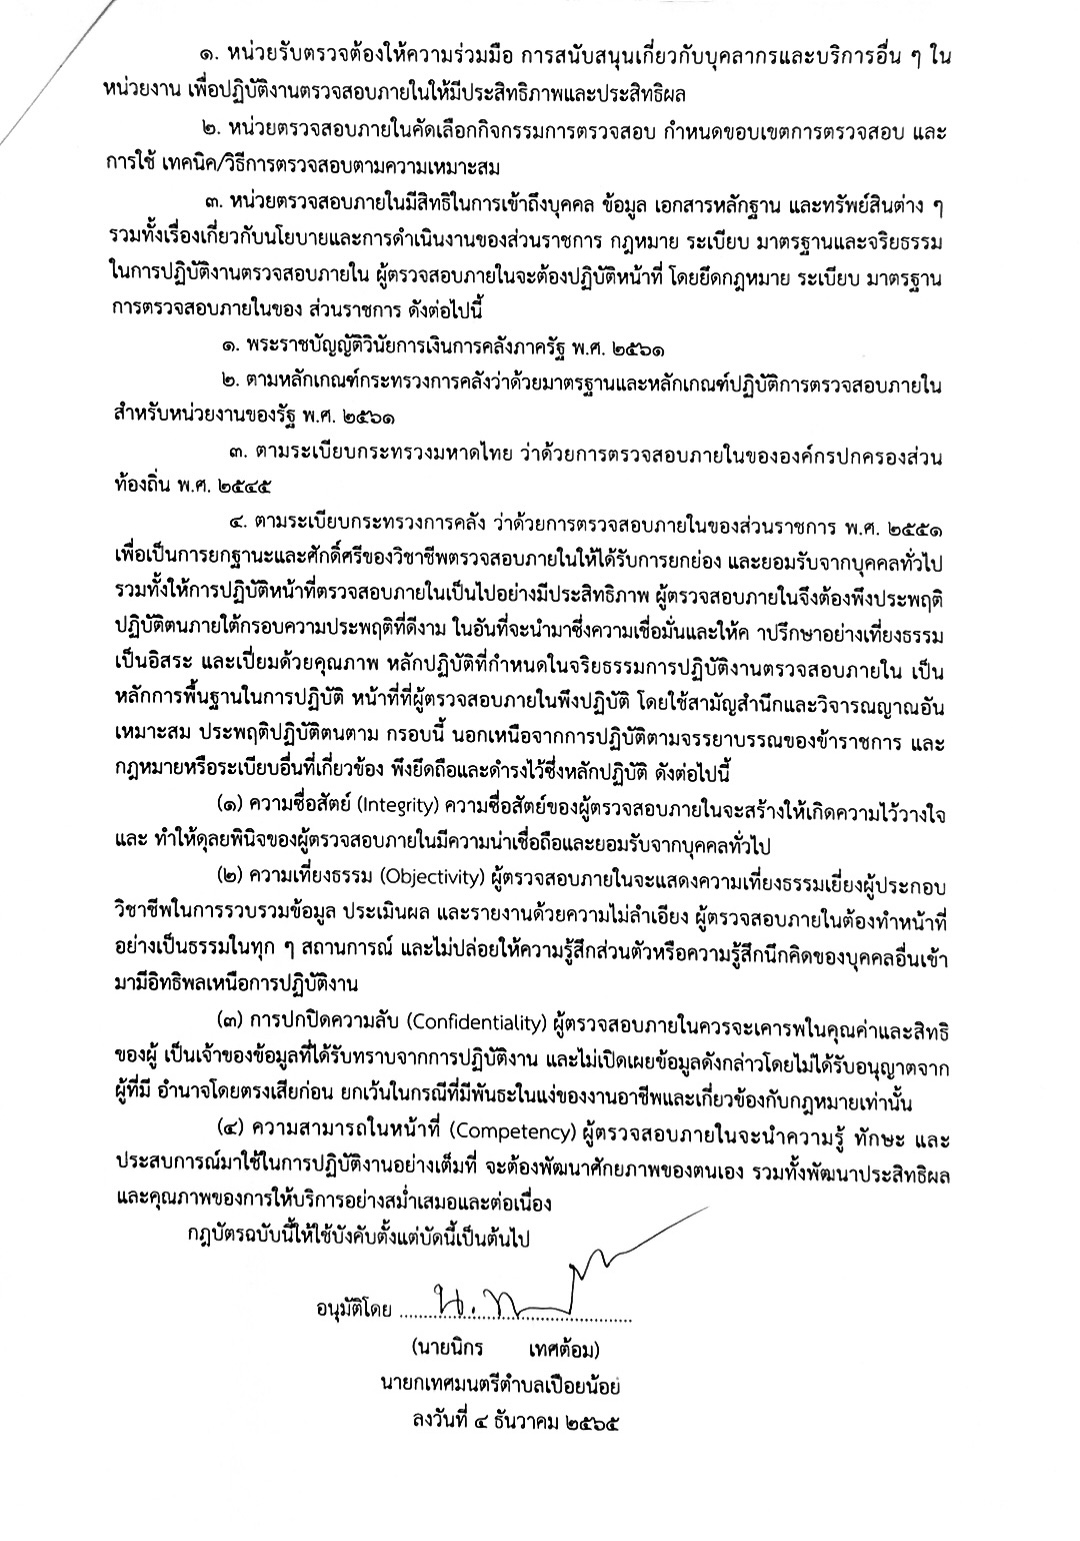 ๑. หน่วยรับตรวจต้องให้ความร่วมมือ การสนับสนุนเกี่ยวกับบุคลากรและบริการอื่น ๆ ใน
หน่วยงาน เพื่อปฏิบัติงานตรวจสอบภายในให้มีประสิทธิภาพและประสิทธิผล
๒. หน่วยตรวจสอบภายในคัดเลือกกิจกรรมการตรวจสอบ กำหนดขอบเขตการตรวจสอบ และ
การใช้ เทคนิค/วิธีการตรวจสอบตามความเหมาะสม
๓. หน่วยตรวจสอบภายในมีสิทธิในการเข้าถึงบุคคล ข้อมูล เอกสารหลักฐาน และทรัพย์สินต่าง ๆ
รวมทั้งเรื่องเกี่ยวกับนโยบายและการดำเนินงานของส่วนราชการ กฎหมาย ระเบียบ มาตรฐานและจริยธรรม
ในการปฏิบัติงานตรวจสอบภายใน ผู้ตรวจสอบภายในจะต้องปฏิบัติหน้าที่ โดยยึดกฎหมาย ระเบียบ มาตรฐาน
การตรวจสอบภายในของ ส่วนราชการ ดังต่อไปนี้
๑. พระราชบัญญัติวินัยการเงินการคลังภาครัฐ พ.ศ. ๒๕๖๑
๒. ตามหลักเกณฑ์กระทรวงการคลังว่าด้วยมาตรฐานและหลักเกณฑ์ปฏิบัติการตรวจสอบภายใน
สำหรับหน่วยงานของรัฐ พ.ศ. ๒๕๖๑
๓. ตามระเบียบกระทรวงมหาดไทย ว่าด้วยการตรวจสอบภายในขององค์กรปกครองส่วน
ท้องถิ่น พ.ศ. ๒๕๔๕
๔. ตามระเบียบกระทรวงการคลัง ว่าด้วยการตรวจสอบภายในของส่วนราชการ พ.ศ. ๒๕๕๑
เพื่อเป็นการยกฐานะและศักดิ์ศรีของวิชาชีพตรวจสอบภายในให้ได้รับการยกย่อง และยอมรับจากบุคคลทั่วไป
รวมทั้งให้การปฏิบัติหน้าที่ตรวจสอบภายในเป็นไปอย่างมีประสิทธิภาพ ผู้ตรวจสอบภายในจึงต้องพึงประพฤติ
ปฏิบัติตนภายใต้กรอบความประพฤติที่ดีงาม ในอันที่จะนำมาซึ่งความเชื่อมั่นและให้ค าปรึกษาอย่างเที่ยงธรรม
เป็นอิสระ และเปี่ยมด้วยคุณภาพ หลักปฏิบัติที่กำหนดในจริยธรรมการปฏิบัติงานตรวจสอบภายใน เป็น
หลักการพื้นฐานในการปฏิบัติ หน้าที่ที่ผู้ตรวจสอบภายในพึงปฏิบัติ โดยใช้สามัญสำนึกและวิจารณญาณอัน
เหมาะสม ประพฤติปฏิบัติตนตาม กรอบนี้ นอกเหนือจากการปฏิบัติตามจรรยาบรรณของข้าราชการ และ
กฎหมายหรือระเบียบอื่นที่เกี่ยวข้อง พึงยึดถือและดำรงไว้ซึ่งหลักปฏิบัติ ดังต่อไปนี้
(๑) ความซื่อสัตย์ (Integrity) ความซื่อสัตย์ของผู้ตรวจสอบภายในจะสร้างให้เกิดความไว้วางใจ
และ ทำให้ดุลยพินิจของผู้ตรวจสอบภายในมีความน่าเชื่อถือและยอมรับจากบุคคลทั่วไป
(๒) ความเที่ยงธรรม (Objectivity) ผู้ตรวจสอบภายในจะแสดงความเที่ยงธรรมเยี่ยงผู้ประกอบ
วิชาชีพในการรวบรวมข้อมูล ประเมินผล และรายงานด้วยความไม่ลำเอียง ผู้ตรวจสอบภายในต้องทำหน้าที่
อย่างเป็นธรรมในทุก ๆ สถานการณ์ และไม่ปล่อยให้ความรู้สึกส่วนตัวหรือความรู้สึกนึกคิดของบุคคลอื่นเข้า
มามีอิทธิพลเหนือการปฏิบัติงาน
(๓) การปกปิดความลับ (Confidentiality) ผู้ตรวจสอบภายในควรจะเคารพในคุณค่าและสิทธิ
ของผู้ เป็นเจ้าของข้อมูลที่ได้รับทราบจากการปฏิบัติงาน และไม่เปิดเผยข้อมูลดังกล่าวโดยไม่ได้รับอนุญาตจาก
ผู้ที่มี อำนาจโดยตรงเสียก่อน ยกเว้นในกรณีที่มีพันธะในแง่ของงานอาชีพและเกี่ยวข้องกับกฎหมายเท่านั้น
(๔) ความสามารถในหน้าที่ (Competency) ผู้ตรวจสอบภายในจะนำความรู้ ทักษะ และ
ประสบการณ์มาใช้ในการปฏิบัติงานอย่างเต็มที่ จะต้องพัฒนาศักยภาพของตนเอง รวมทั้งพัฒนาประสิทธิผล
และคุณภาพของการให้บริการอย่างสม่ำเสมอและต่อเนื่อง
กฎบัตรฉบับนี้ให้ใช้บังคับตั้งแต่บัดนี้เป็นต้นไป
อนุมัติโดย
(นายนิกร เทศต้อม)
นายกเทศมนตรีตำบลเปือยน้อย
ลงวันที่ ๔ ธันวาคม ๒๕๖๕